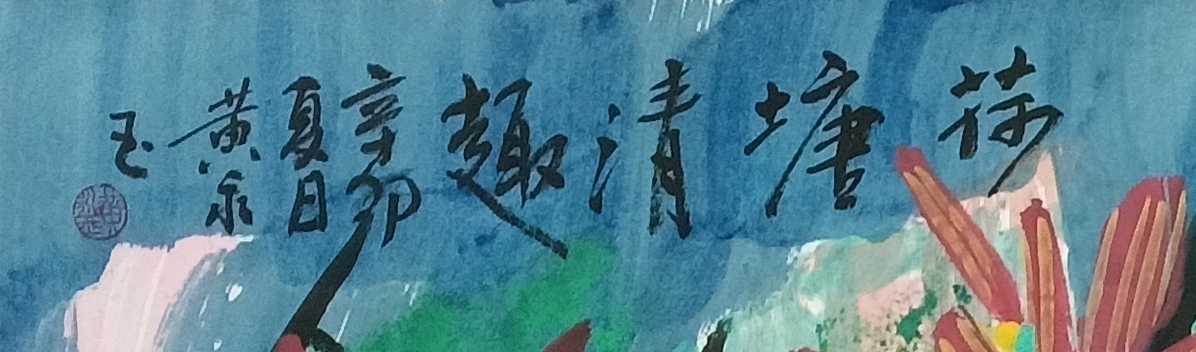 荷塘清趣
辛卯
夏日
黄永
玉